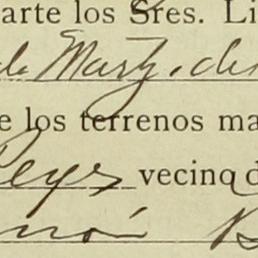 arte los Sres. Li
da Martz, de
e los terrenos ma
Reyes vecino d
món B